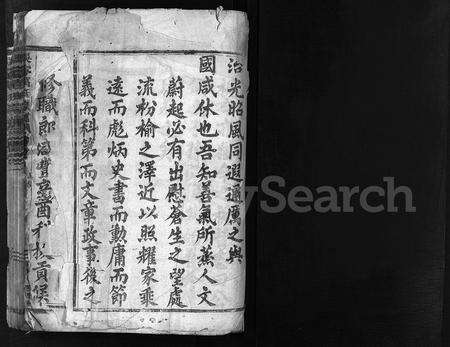 治光昭風同遐邇厲之與
國咸休也吾知善氣所蒸人文
蔚起必有出慰蒼生之望處
流枌榆之澤近以照耀家乘
遠而彪炳史書而勳庸而節
義而科第而文章政事後之
修職郎
貢候
MySearch